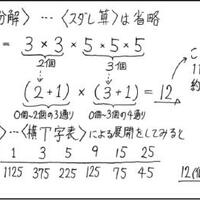 分解〉…〈スダレ算〉は省略
= 3 × 3 × 5 × 5 × 5
2個 3個
(2+1) × (3+1) = 12
0個~2個の3通り 0個~3個の4通り
〈横丁字表〉による展開をしてみると
1 3 5 9 15 25
1125 375 225 125 75 45
12(個